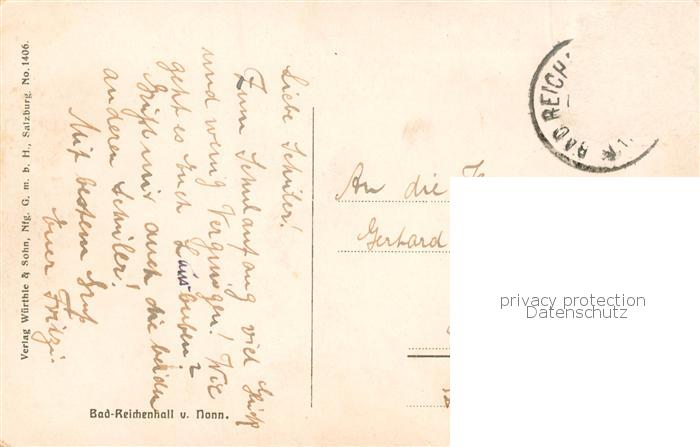 Liebe Schüler!
Zum Schulanfang viel Glück
und wenig Vergnügen! Wie
geht es Euch Lausbuben?
Grüßt mir auch die beiden
anderen Schüler!
Mit bestem Gruß
Euer Fritzi.
Verlag Würthle & Sohn, Nfg. G. m. b. H., Salzburg. No. 1406.
Bad-Reichenhall v. Nonn.
BAD REICH
An die
Gerhard
privacy protection
Datenschutz